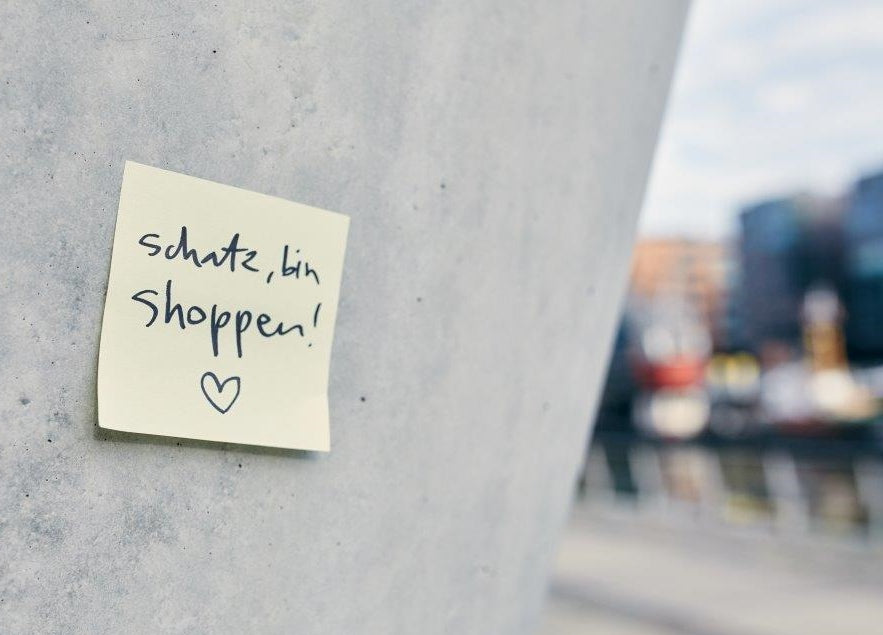 Schatz, bin
Shoppen!
♡